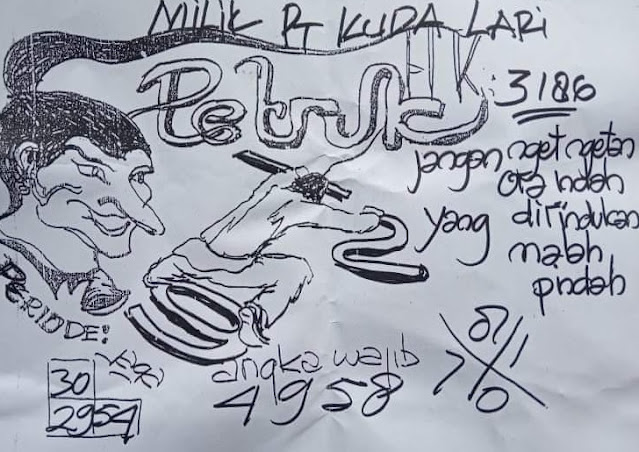 MILIK PT KUDA LARI
Petruk
EIK: 3186
jangan nget ngetan
ora indah
yang dirindukan
malah
pindah
PERIODE:
30
2954
angka wajib
4958
7 0